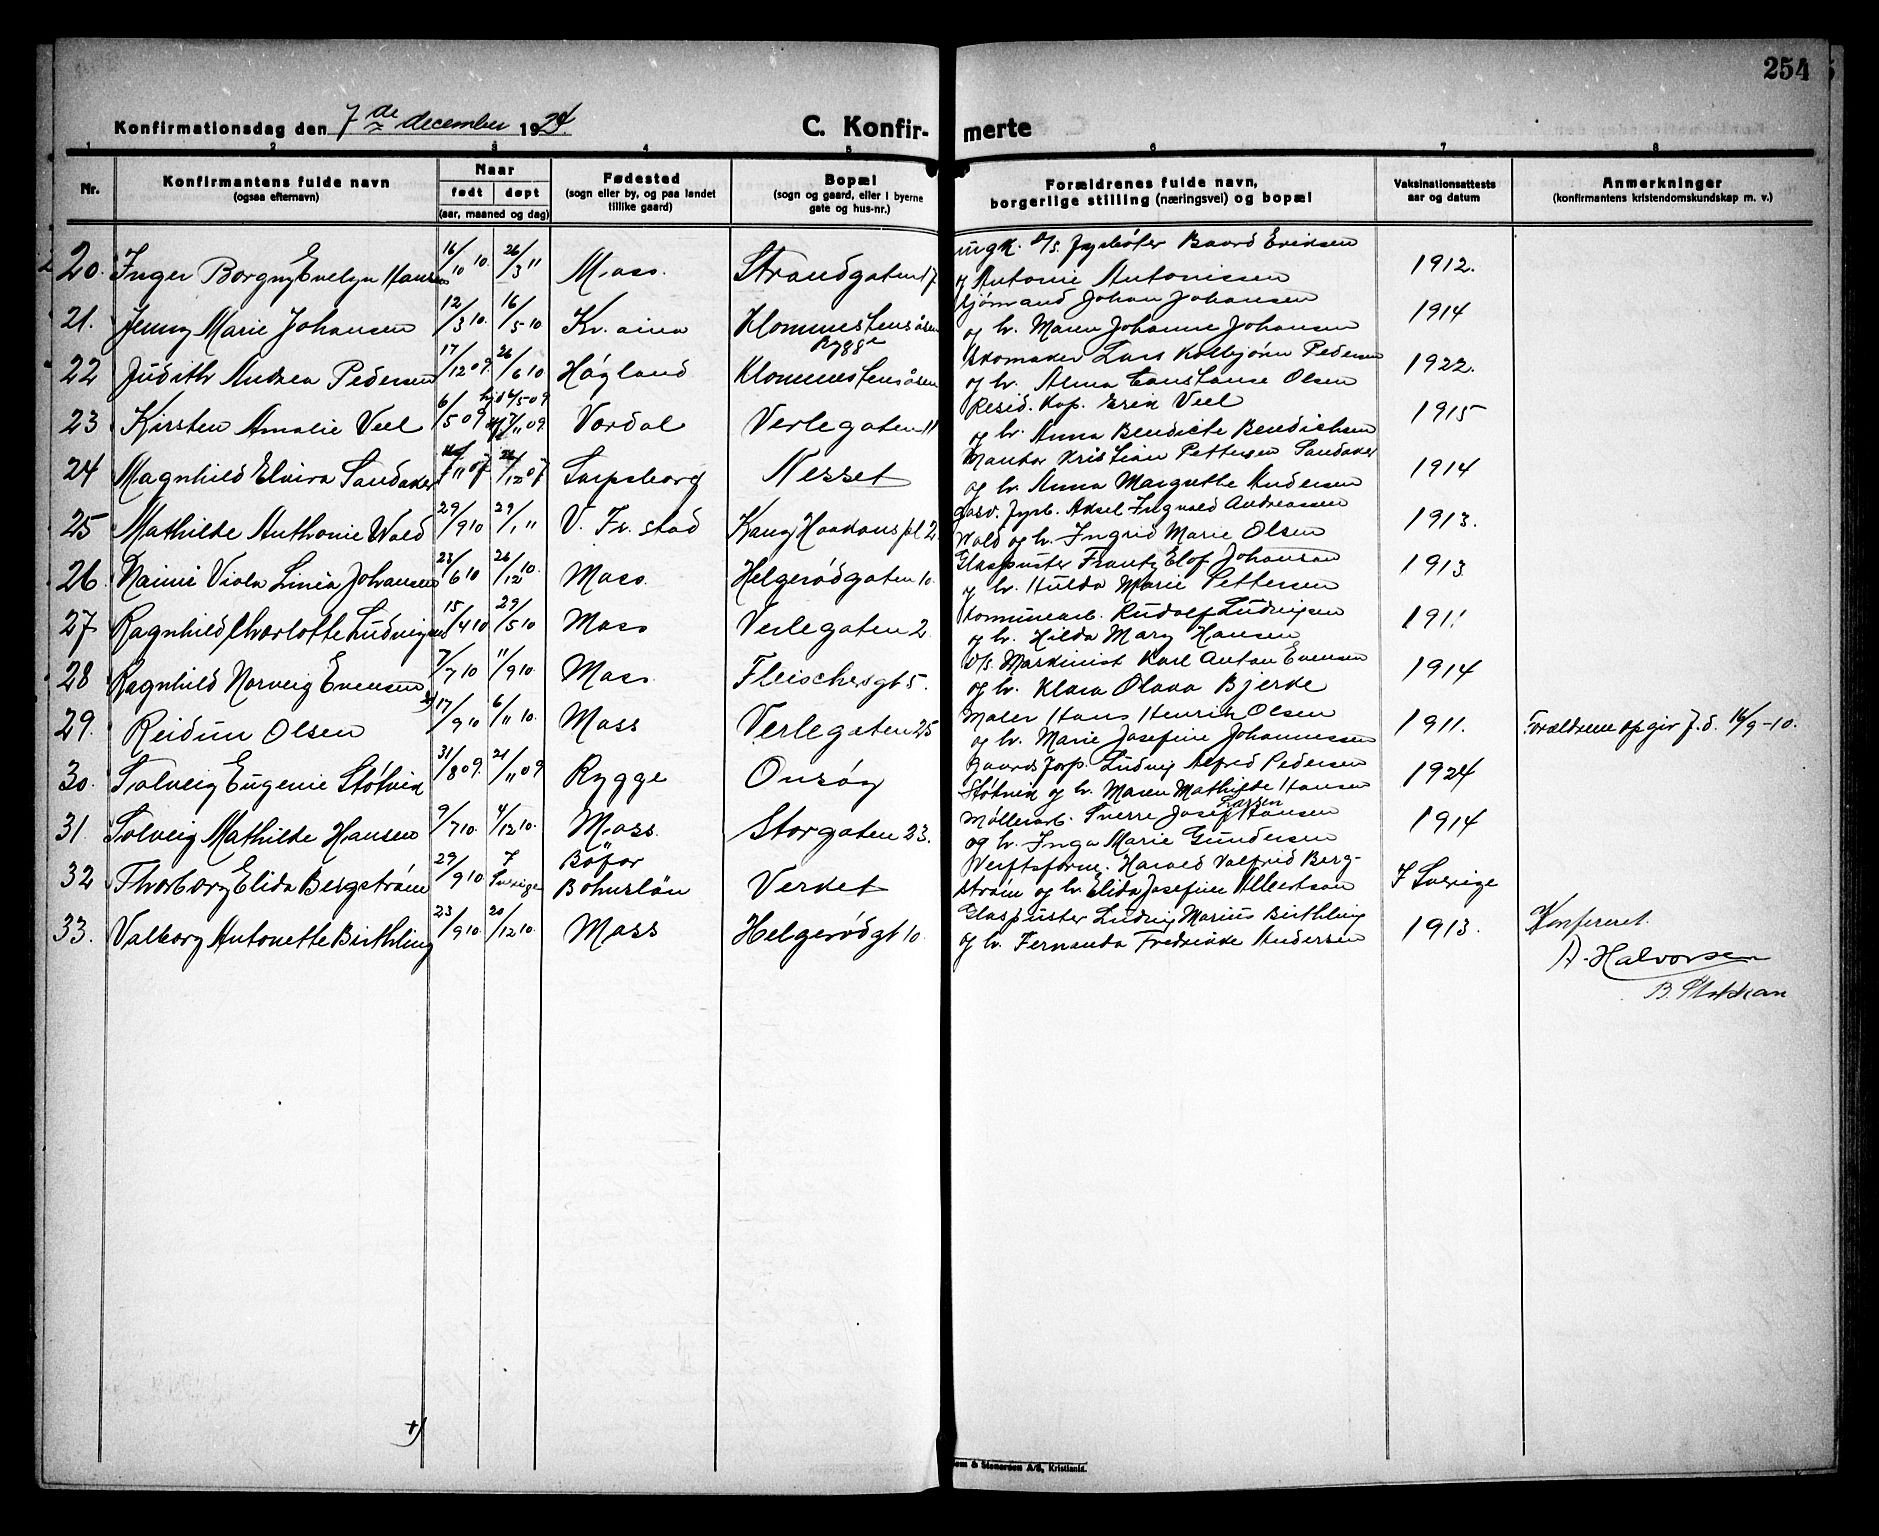 254
Konfirmationsdag den 7de december 1924
C. Konfir- merte
1 2 3 4 5 6 7 8
Nr.
Konfirmantens fulde navn
(ogsaa efternavn)
Naar
født døpt
(aar, maaned og dag)
Fødested
(sogn eller by, og paa landet
tillike gaard)
Bopæl
(sogn og gaard, eller i byerne
gate og hus-nr.)
Forældrenes fulde navn,
borgerlige stilling (næringsvei) og bopæl
Vaksinationsattests
aar og datum
Anmerkninger
(konfirmantens kristendomskundskap m. v.)
ungk. d/s. fyrbøter Baard Eriksen
20. Inger Borgny Evelyn Hansen 16/10 10. 26/3 11 Moss. Strandgaten 17 og Antonie Antonissen 1912.
Sjømand Johan Johansen
21. Jenny Marie Johansen 12/3 10. 16/5 10 Kr.ania Klommestensåsen og h. Maren Johanne Johansen 1914
Rygge
Skomaker Lars Kolbjørn Pedersen
22 Judith Andrea Pedersen 17/12 09. 26/6 10 Høgland Klommestensåsen og h. Alma Constanse Olsen 1922.
Resid. Kap. Erik Veel
23 Kirsten Amalie Veel 6/5 09 hjd 6/5-09 7/11 09. Vordal Verlegaten 11 og h. Anna Bendicte Bendichsen 1915
Kantor Kristian Pettersen Sandaker
24 Magnhild Elvira Sandaker 11 07 12 07 Sarpsborg Nesset og h. Anna Margrethe Andersen 1914
gasv. fyrb. Aksel Ingvald Andreassen
25 Mathilde Anthonie Wold 29/9 10 29/1 11 V. Fr.stad Kong Haakons pl 2. Wold og h. Ingrid Marie Olsen 1913.
Glaspuster Frantz Elof Johanson
26 Naimi Viola Linia Johansen 23/6 10 26/12 10. Moss. Helgerødgaten 10. og h. Hulda Marie Pettersen 1913
Kommunearb. Rudolf Ludvigsen
27 Ragnhild Charlotte Ludvigsen 15/4 10 29/5 10 Moss Verlegaten 2. og h. Hilda Mary Hansen 1911
d/s. Maskinist Karl Anton Evensen
28 Ragnhild Norveig Evensen 7/7 10 11/9 10. Moss Fleischersgt 5. og h. Klara Olava Bjerke 1914
Maler Hans Henrik Olsen
29. Reidun Olsen x) 17/9 10 6/11 10. Moss Verlegaten 25 og h. Marie Josefine Johannessen 1911. Forældrene opgir f. d. 16/9-10.
Gaardsforp. Ludvig Alfred Pedersen
30. Solveig Eugenie Støtvik 31/8 09. 21/11 09 Rygge Onsøy Støtvik og h. Maren Mathilde Hansen 1924
Møllerarb. Sverre Josef Larsen Hansen
31. Solveig Mathilde Hansen 9/7 10. 4/12 10. Moss. Storgaten 23. og h. Inga Marie Gundersen 1914
Verftsform. Harald Valfrid Berg-
32 Thorborg Elida Bergstrøm 29/9 10 I Sverige Böfor Bohuslän Verket strøm og h. Elida Josefine Albertson I Sverige
Glaspuster Ludvig Marius Birthling
33. Valborg Antonette Birthling 23/9 10. 20/12 10. Moss Helgerødgt 10. og h. Fernanda Fredrikke Andersen 1913. Konfereret.
A. Halvorsen
x)
& Stenersen A/S, Kristiania.